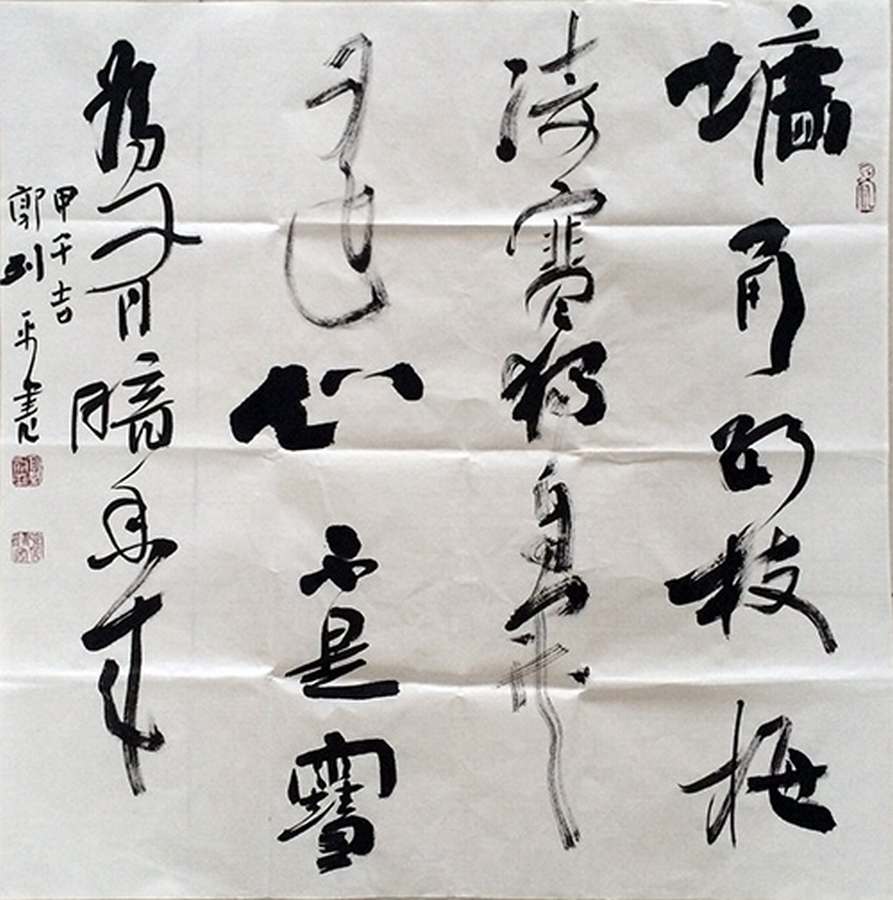 墻角数枝梅
凌寒独自開
遥知不是雪
為有暗香来
甲午吉
郭平書